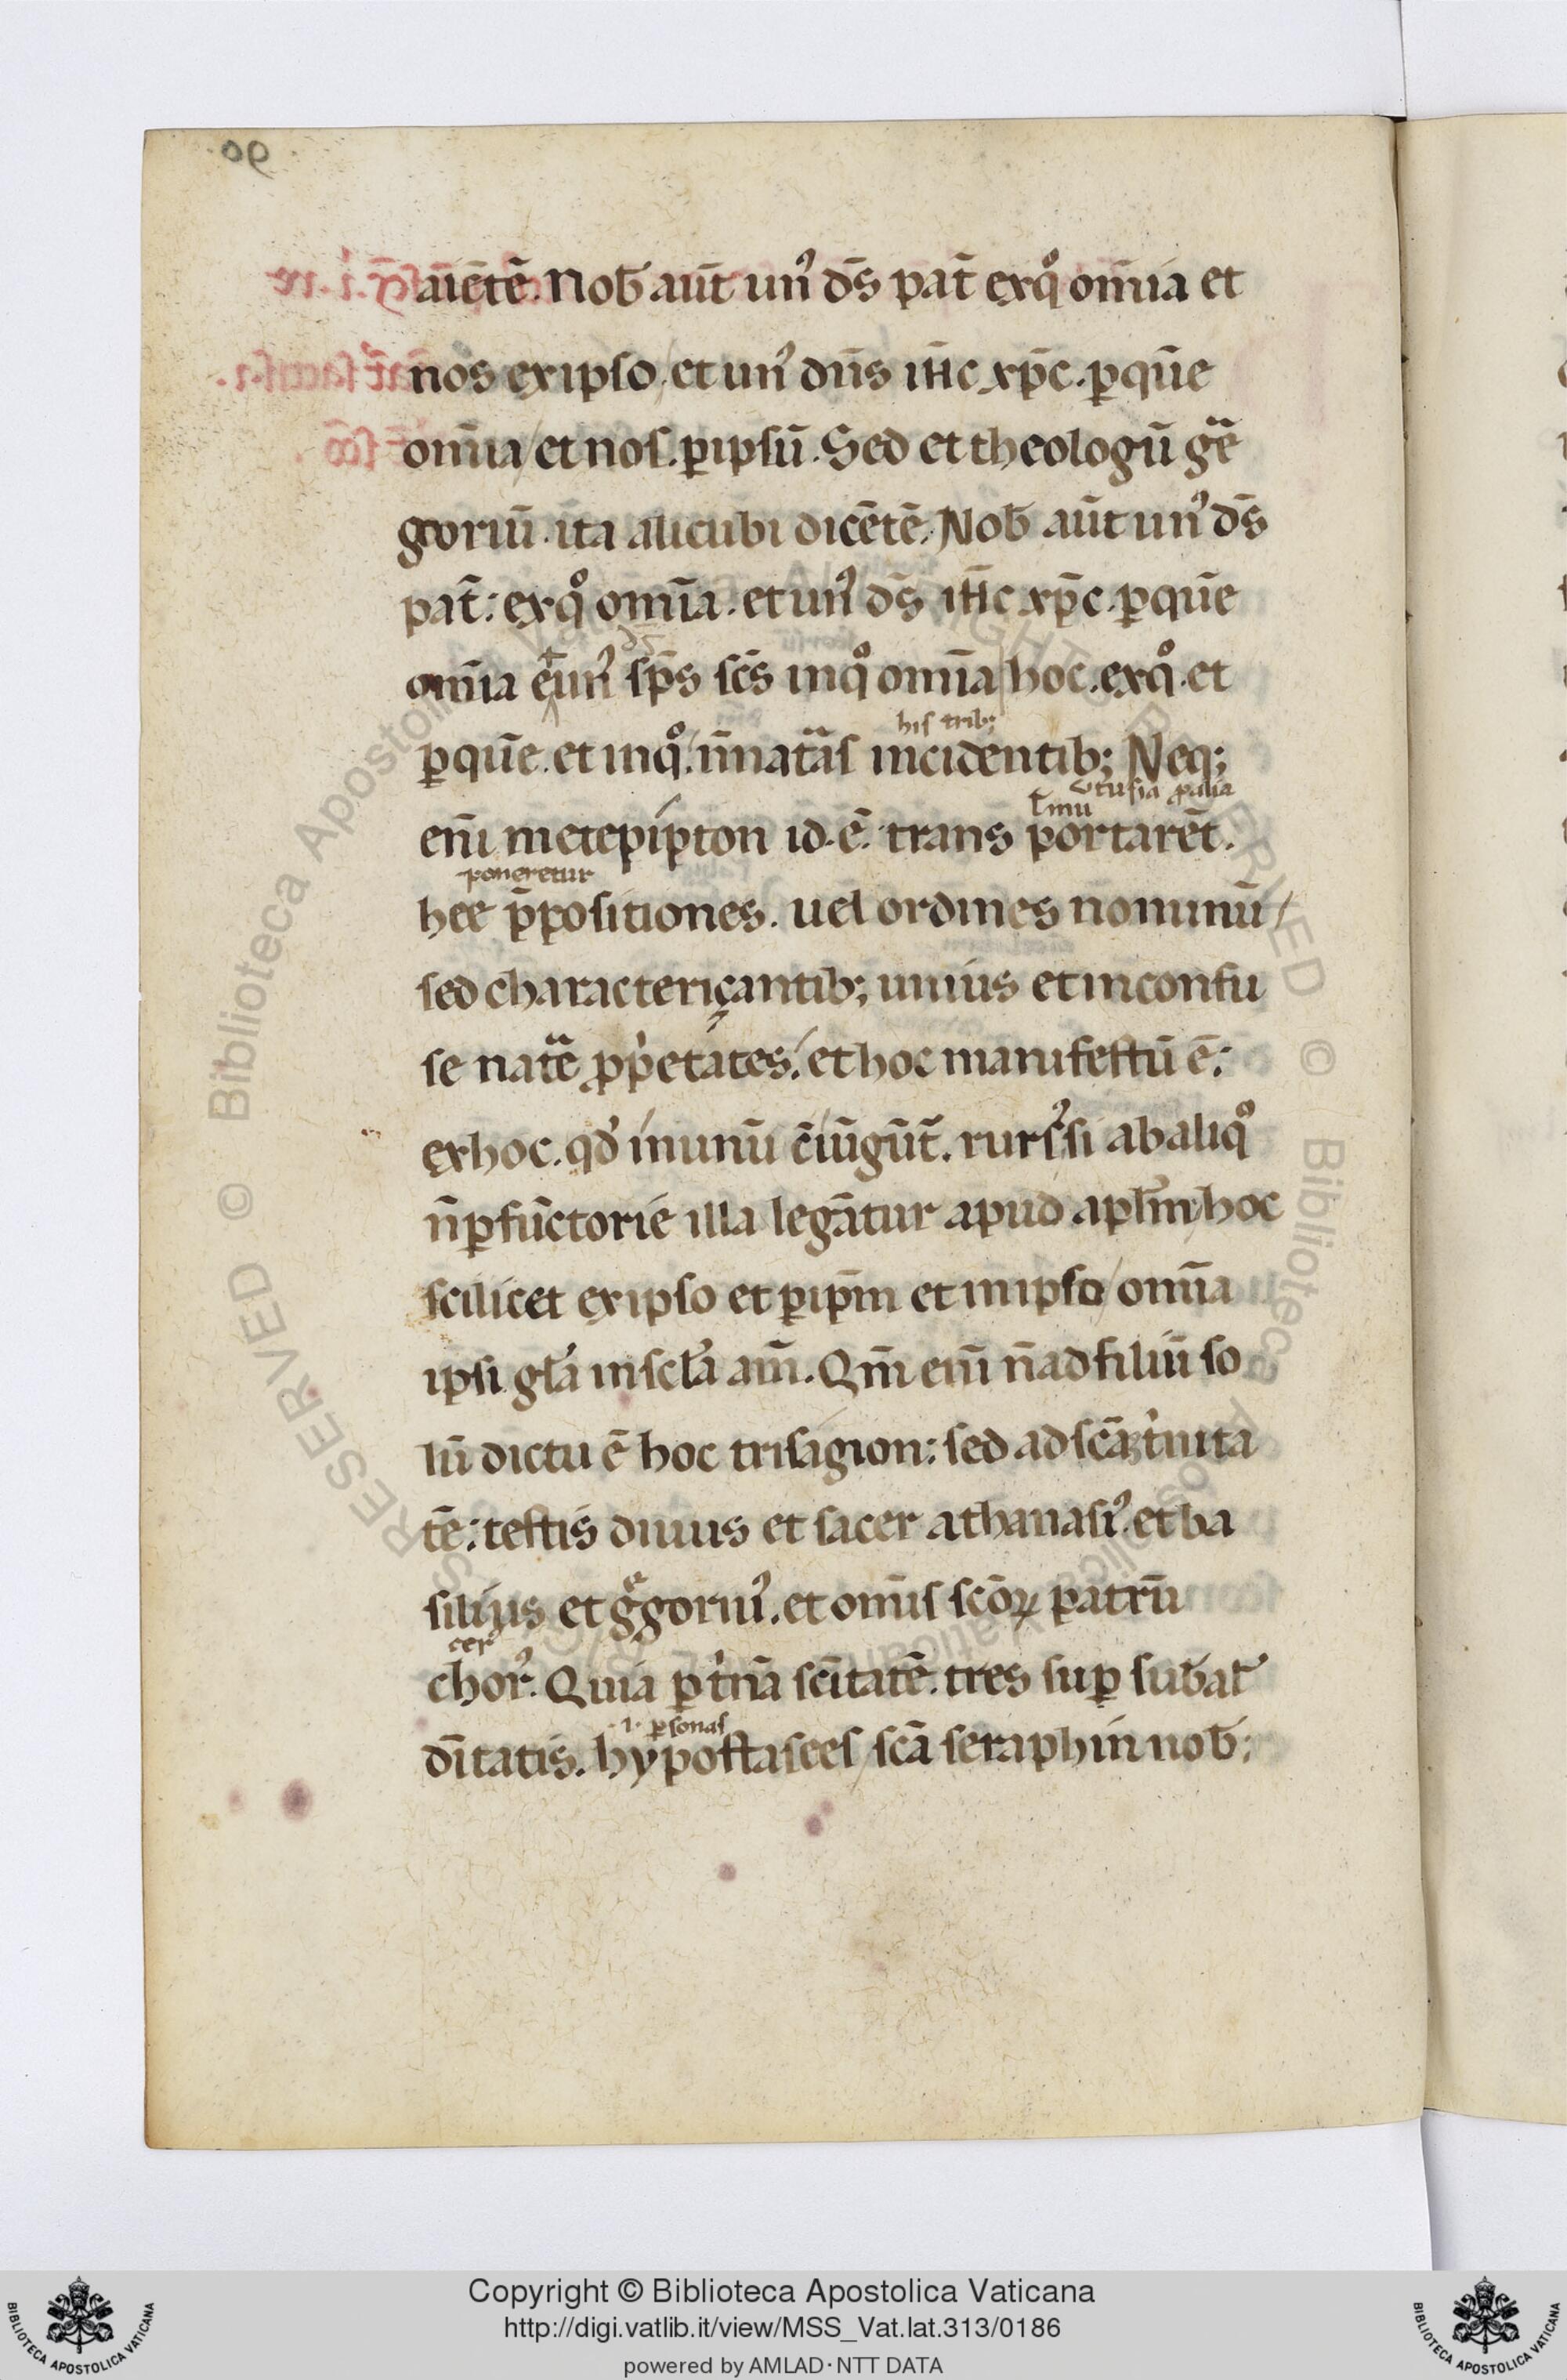 90
aiētē. Nob̄ aūt unꝰ ds̄ pat̄ exqͦ om̄ia et
nos exipso / et unꝰ dn̄s ih̄c xp̄c. ꝑquē
om̄ia / et nos. ꝑipsū. Sed et theologū gͣē
gorium. ita alicubi dicētē. Nob̄ aūt unꝰ ds̄
pat̄: exqͦ om̄ia. et unꝰ ds̄ ih̄c xp̄c. ꝑquē
om̄ia et unꝰ sp̄s sc̄s inqͦ om̄ia / hoc. exqͦ. et
his trib;
ꝑquē. et inqͦ. n̄ natͣas incidentib; Neq;
eni metepípton id. ē. trans portarēt.
poneretur
hee p̄positiones. uel ordines nominū /
sed characteriçantib; unius et inconfu
se natͣe ꝓp'etates. et hoc manifestū ē:
exhoc. qd' inunū c̄iūgūt̄. rursꝰ si abaliqͦ
n̄ ꝑfūctorie illa legātur apud apl'm / hoc
scilicet exipso et ꝑip̄m et inipso / om̄ia
ipsi gl'a inscl'a am̄. Qm̄ eni n̄ ad filiū so
lū dictu ē hoc trisagion: sed ad scāꝫ t'nita
tē: testis diuus et sacer athanasiꝰ. et ba
silijus et gͤgoriuꝰ. et om̄is scōꝝ patrū
cerꝰ
chorꝰ. Quia ꝑ t'nā sc̄itatē. tres suꝑ sub̄at'
.i. ꝑsonas
dītatis. hypostasees / scā seraphin nob̄;
Copyright © Biblioteca Apostolica Vaticana
http://digi.vatlib.it/view/MSS_Vat.lat.313/0186
powered by AMLAD·NTT DATA